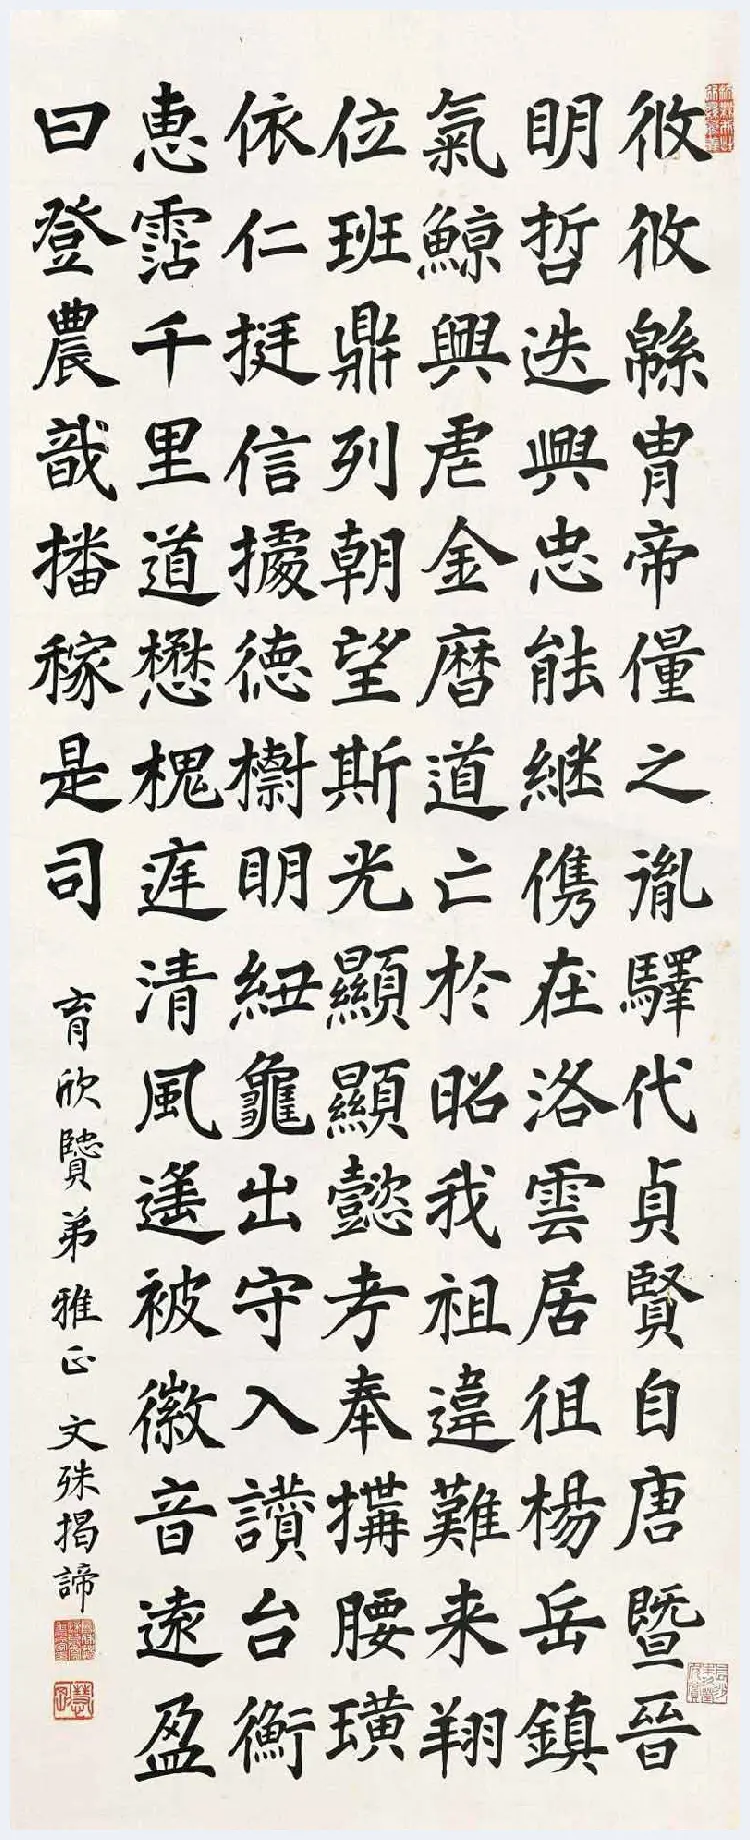 攸攸緜胄帝之胤驛代貞賢自唐暨晉
明哲迭興忠能継儁在洛雲居徂楊岳鎮
氣鯨興虐金曆道亡於昭我祖違難来翔
位班鼎列朝望斯光顯顯懿考奉搆腰璜
依仁挺信據德樹明紐龜出守入讃台衡
惠霑千里道懋槐庭清風遥被徽音遠盈
曰登農戠播稼是司
育欣賢弟雅正 文殊揭諦